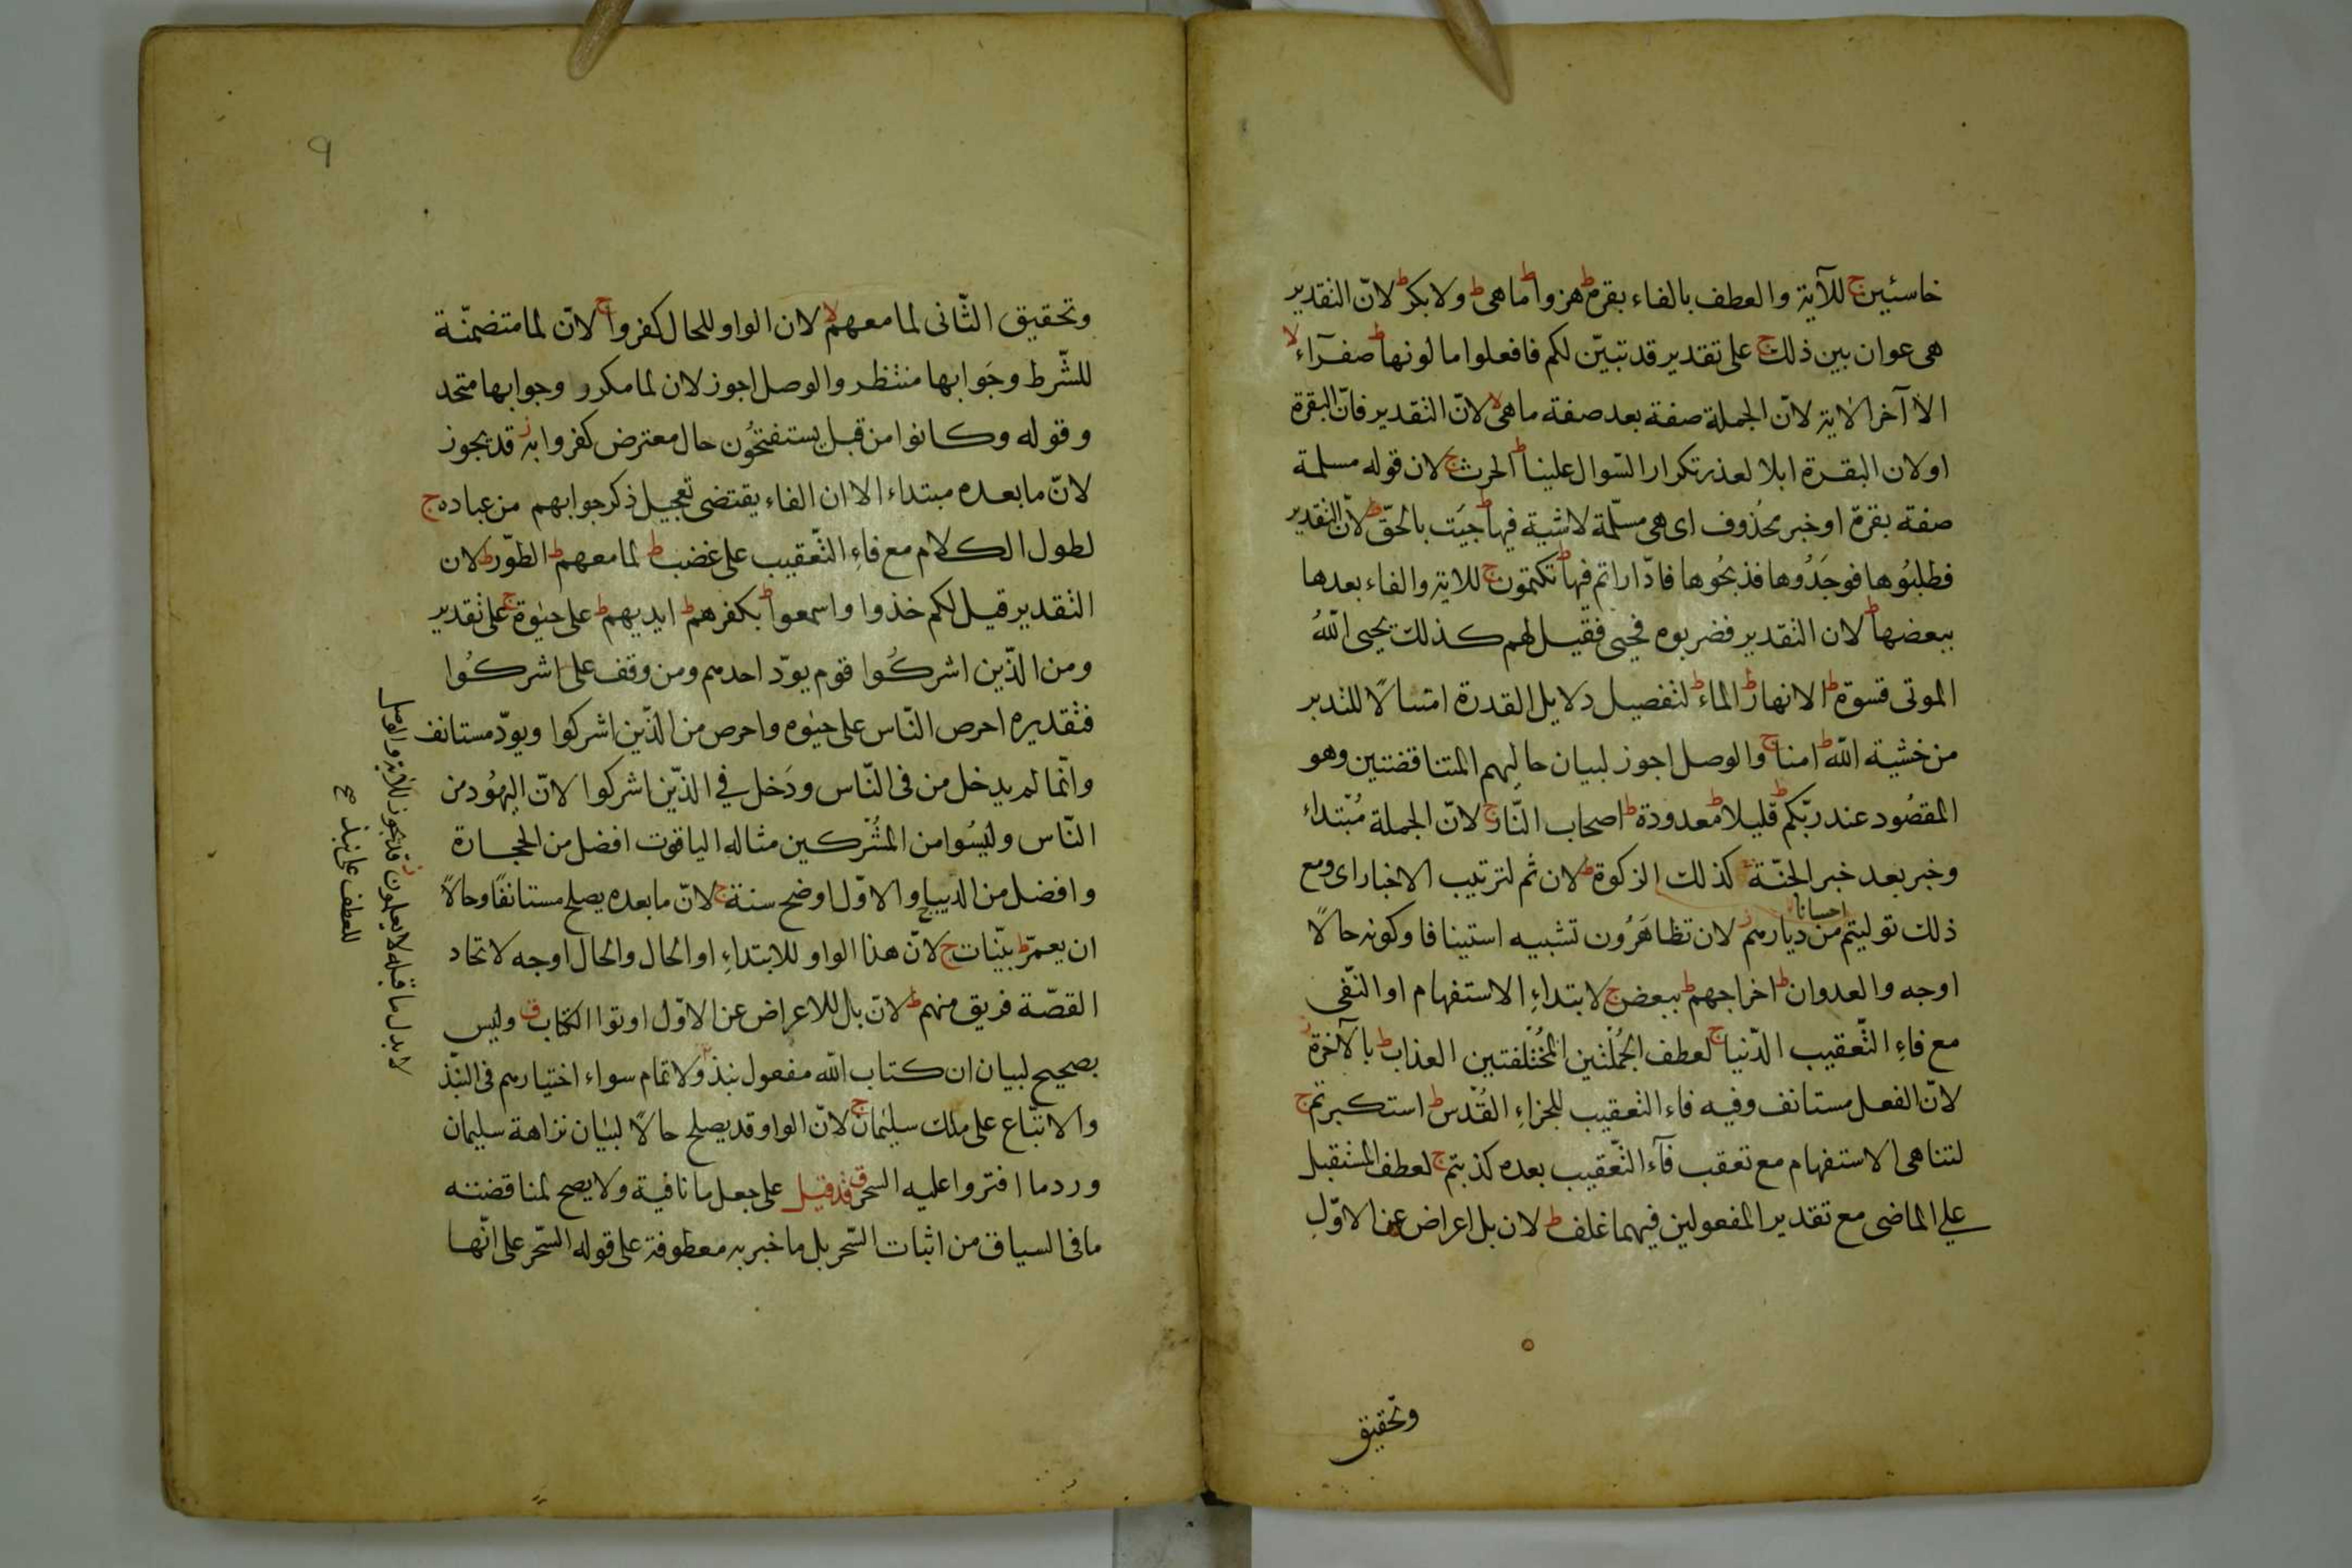 خاسئين ج للآية والعطف بالفاء بقرة ط هزوا ط ما هى ط ولا بكر ط لانّ التقدير
هى عوان بين ذلك ج على تقدير قد تبيّن لكم فافعلوا ما لونها ط صفرآء لا
الا آخر الاية لانّ الجملة صفة بعد صفة ما هى لا لانّ التقدير فانّ البقرة
او لان البقرة ابلا لعذر تكرار السّوال علينا ط الحرث ج لان قوله مسلمة
صفة بقرة او خبر محذوف اى هى مسلّمة لا شية فيها ط جيت بالحقّ ط لانّ التقدير
فطلبُوها فوجَدُوها فذبحُوها فادّاراتم فيها ط تكتمون ج للاية والفاء بعدها
ببعضها ط لان التقدير فضربوه فحيى فقيل لهم كذلك يحيى اللهُ
الموتى قسوة ط الانهار ط الماء ط لتفصيل دلايل القدرة امتثالًا للتدبر
من خشية الله ط امنا ج والوصل اجوز لبيان حاليهم المتناقضتين وهو
المقصُود عند ربّكم ط قليلا ط معدودة ط اصحاب النّار ج لانّ الجملة مُبتداء
وخبر بعد خبر الجنّة كذلك الزكوة ط لان ثم لترتيب الاخبار اى ومع
احسانا
ذلك توليتم من ديارهم ز لان تظاهَرُون تشبيه استينافا وكونه حالًا
اوجه والعدوان ط اخراجهم ط ببعض ج لابتداءِ الاستفهام او النّفى
مع فاءِ التّعقيب الدّنيا ج لعطف الجُملتين المُختلفتين العذاب ط بالآخرة ز
لانّ الفعل مستانف وفيه فاء التعقيب للجزاءِ القُدس ط استكبرتم ج
لتناهى الاستفهام مع تعقب فآء التّعقيب بعده كذبتم ج لعطف المستقبل
على الماضى مع تقدير المفعولين فيهما غلف ط لان بل اعراض عن الاوّل
وتحقيق
٩
وتحقيق الثّانى لما معهم لا لان الواو للحال كفروا ج لانّ لما متضمّنة
للشّرط وجَوابها منتظر والوصل اجوز لان لما مكرر وجوابها متحد
وقوله وكانوا من قبل يستفتحُون حال معترض كفروا به ز قد يجوز
لانّ ما بعده مبتداء الا ان الفاء يقتضى تعجيل ذكر جوابهم من عباده ج
لطول الكلام مع فاءِ التّعقيب على غضب ط لما معهم ط الطّور ط لان
التقدير قيل لكم خذوا واسمعوا ط بكفرهم ط ايديهم ط على حيٰوة ج على تقدير
ومن الذّين اشركُوا قوم يودّ احدهم ومن وقف على اشركُوا
فتقديره احرص النّاس على حيٰوه واحرص من الذّين اشركوا ويودّ مستانف
وانّما لم يدخل من فى النّاس ودَخل في الذّين اشركوا لانّ اليهُود من
النّاس وليسُوا من المُشركين مثاله الياقوت افضل من الحجارة
وافضل من الديباج والاوّل اوضح سنة ج لانّ ما بعده يصلح مستانفًا وحالًا
ان يعمّر ط بيّنات ج لانّ هذا الواو للابتداءِ او الحال والحال اوجه لاتحاد
القصّة فريق منهم ط لانّ بال للاعراض عن الاوّل اوتوا الكتاب ق وليس
بصحيح لبيان ان كتاب الله مفعول نبذ ولا تمام سواء اختيارهم فى النبّذ
والاتّباع على ملك سليمان ج لانّ الواو قد يصلح حالًا لبيان نزاهة سليمان
ورد ما افتروا عليه السحر ق قد قيل على جعل ما نافية ولا يصح لمناقضته
ما فى السياق من اثبات السّحر بل ما خبر به معطوفة على قوله السّحر على انّها
لا بدل ما قبله لا يعلمون ز قد يجوز للاية والوصل
للعطف على نبذ صح